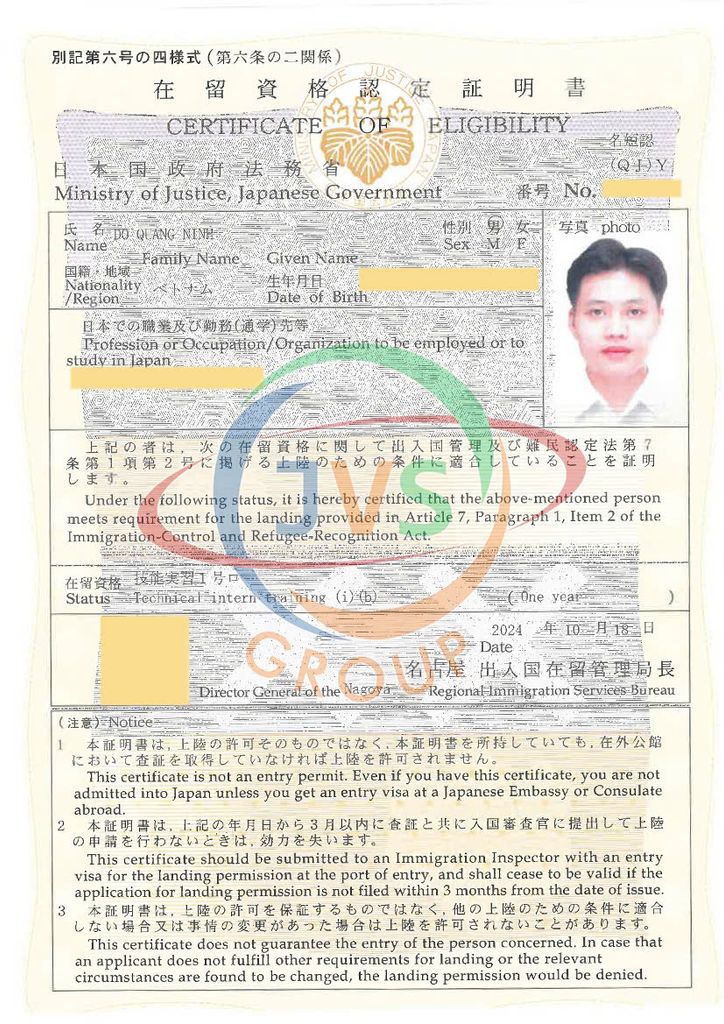 別記第六号の四様式(第六条の二関係)
在留資格認定証明書
CERTIFICATE OF ELIGIBILITY
名短認
日本国政府法務省
(QJ)Y
Ministry of Justice, Japanese Government
番号 No.
氏名 DO QUANG NINH 性別 男 女 写真 photo
Name Family Name Given Name Sex M F
国籍・地域 ベトナム 生年月日
Nationality
/Region Date of Birth
日本での職業及び勤務(通学)先等
Profession or Occupation/Organization to be employed or to
study in Japan
上記の者は、次の在留資格に関して出入国管理及び難民認定法第7
条第1項第2号に掲げる上陸のための条件に適合していることを証明
します。
Under the following status, it is hereby certified that the above-mentioned person
meets requirement for the landing provided in Article 7, Paragraph 1, Item 2 of the
Immigration-Control and Refugee-Recognition Act.
JVS
GROUP
在留資格 技能実習1号ロ
Status Technical intern training (i)(b) ( One year )
2024 年 10 月 18 日
Date
名古屋 出入国在留管理局長
Director General of the Nagoya Regional Immigration Services Bureau
(注意) Notice
1 本証明書は、上陸の許可そのものではなく、本証明書を所持していても、在外公館
において査証を取得していなければ上陸を許可されません。
This certificate is not an entry permit. Even if you have this certificate, you are not
admitted into Japan unless you get an entry visa at a Japanese Embassy or Consulate
abroad.
2 本証明書は、上記の年月日から3月以内に査証と共に入国審査官に提出して上陸
の申請を行わないときは、効力を失います。
This certificate should be submitted to an Immigration Inspector with an entry
visa for the landing permission at the port of entry, and shall cease to be valid if the
application for landing permission is not filed within 3 months from the date of issue.
3 本証明書は、上陸の許可を保証するものではなく、他の上陸のための条件に適合
しない場合又は事情の変更があった場合は上陸を許可されないことがあります。
This certificate does not guarantee the entry of the person concerned. In case that
an applicant does not fulfill other requirements for landing or the relevant
circumstances are found to be changed, the landing permission would be denied.